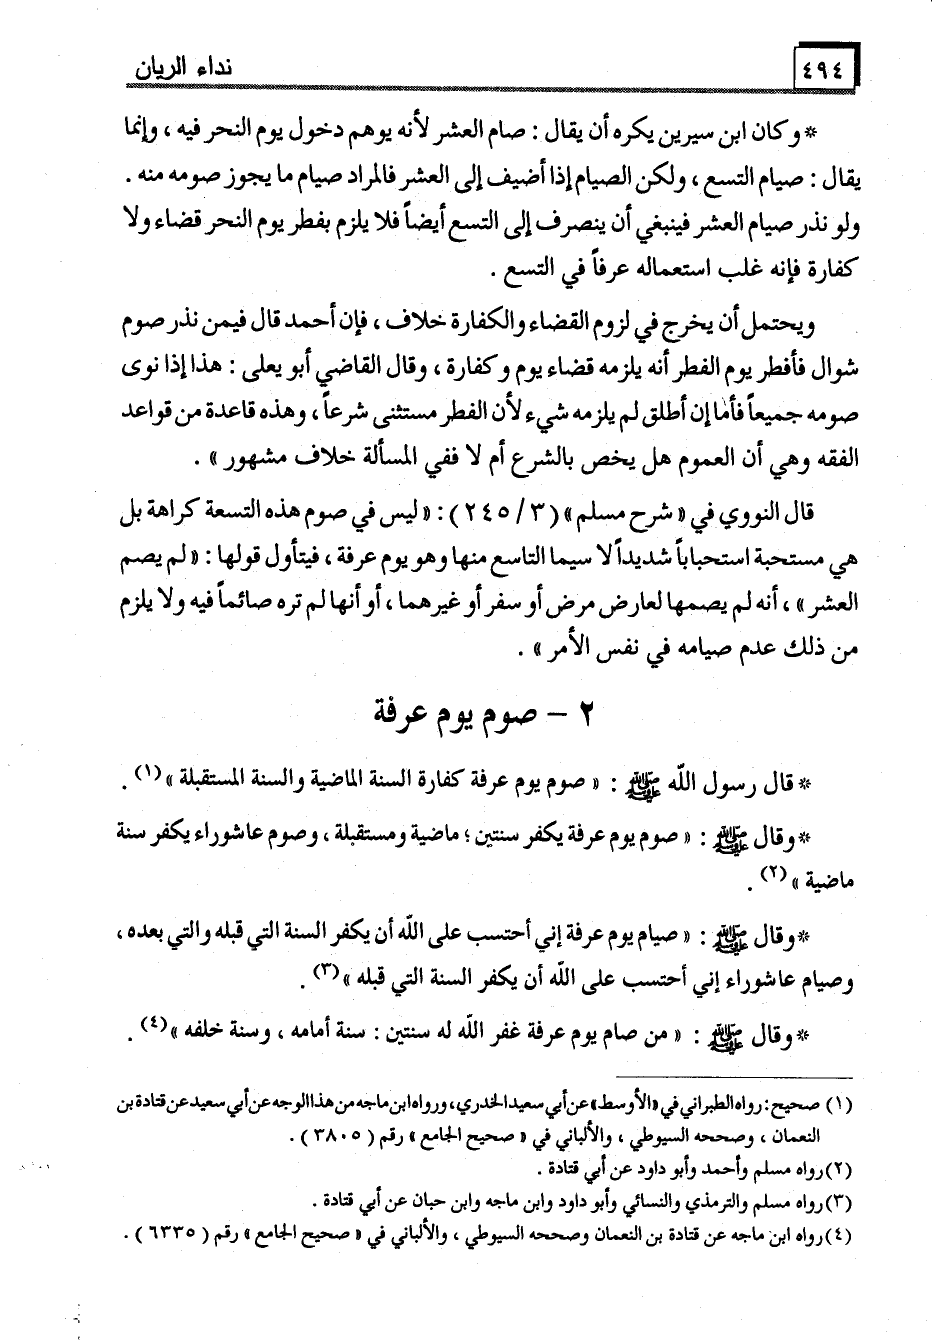 ٤٩٤ نداء الريان
* وكان ابن سيرين يكره أن يقال : صام العشر لأنه يوهم دخول يوم النحر فيه ، وإنما
يقال : صيام التسع ، ولكن الصيام إذا أضيف إلى العشر فالمراد صيام ما يجوز صومه منه .
ولو نذر صيام العشر فينبغي أن ينصرف إلى التسع أيضاً فلا يلزم بفطر يوم النحر قضاء ولا
كفارة فإنه غلب استعماله عرفاً في التسع .
ويحتمل أن يخرج في لزوم القضاء والكفارة خلاف ، فإن أحمد قال فيمن نذر صوم
شوال فأفطر يوم الفطر أنه يلزمه قضاء يوم وكفارة ، وقال القاضي أبو يعلى : هذا إذا نوى
صومه جميعاً فأما إن أطلق لم يلزمه شيء لأن الفطر مستثنى شرعاً ، وهذه قاعدة من قواعد
الفقه وهي أن العموم هل يخص بالشرع أم لا ففي المسألة خلاف مشهور » .
قال النووي في « شرح مسلم » (٣/ ٢٤٥) : « ليس في صوم هذه التسعة كراهة بل
هي مستحبة استحباباً شديداً لا سيما التاسع منها وهو يوم عرفة ، فيتأول قولها : « لم يصم
العشر » ، أنه لم يصمها لعارض مرض أو سفر أو غيرهما ، أو أنها لم تره صائماً فيه ولا يلزم
من ذلك عدم صيامه في نفس الأمر » .
٢ – صوم يوم عرفة
* قال رسول الله ﷺ : « صوم يوم عرفة كفارة السنة الماضية والسنة المستقبلة » (١) .
* وقال ﷺ : « صوم يوم عرفة يكفر سنتين ؛ ماضية ومستقبلة ، وصوم عاشوراء يكفر سنة
ماضية » (٢) .
* وقال ﷺ : « صيام يوم عرفة إني أحتسب على الله أن يكفر السنة التي قبله والتي بعده ،
وصيام عاشوراء إني أحتسب على الله أن يكفر السنة التي قبله » (٣) .
* وقال ﷺ : « من صام يوم عرفة غفر الله له سنتين : سنة أمامه ، وسنة خلفه » (٤) .
(١) صحيح : رواه الطبراني في « الأوسط » عن أبي سعيد الخدري ، ورواه ابن ماجه من هذا الوجه عن أبي سعيد عن قتادة بن
النعمان ، وصححه السيوطي ، والألباني في « صحيح الجامع » رقم ( ٣٨٠٥ ) .
(٢) رواه مسلم وأحمد وأبو داود عن أبي قتادة .
(٣) رواه مسلم والترمذي والنسائي وأبو داود وابن ماجه وابن حبان عن أبي قتادة .
(٤) رواه ابن ماجه عن قتادة بن النعمان وصححه السيوطي ، والألباني في « صحيح الجامع » رقم ( ٦٣٣٥ ) .